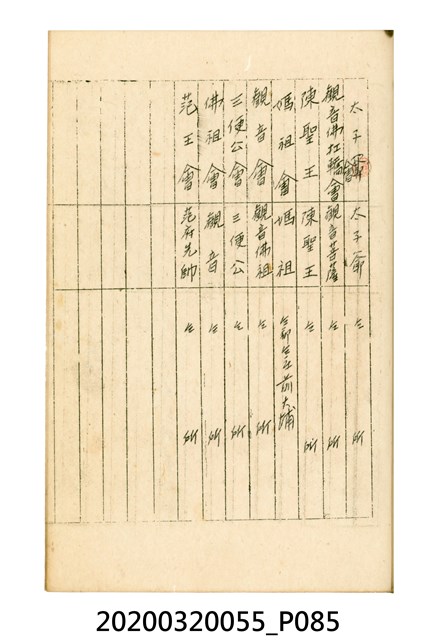 太子爺會 太子爺 仝 所
觀音佛扛轎會 觀音菩薩 仝 所
陳聖王 陳聖王 仝 所
媽祖會 媽祖 仝郡仝庄前大埔
觀音會 觀音佛祖 仝 所
三使公會 三使公 仝 所
佛祖會 觀音 仝 所
范王會 范府先帥 仝 所
20200320055_P085